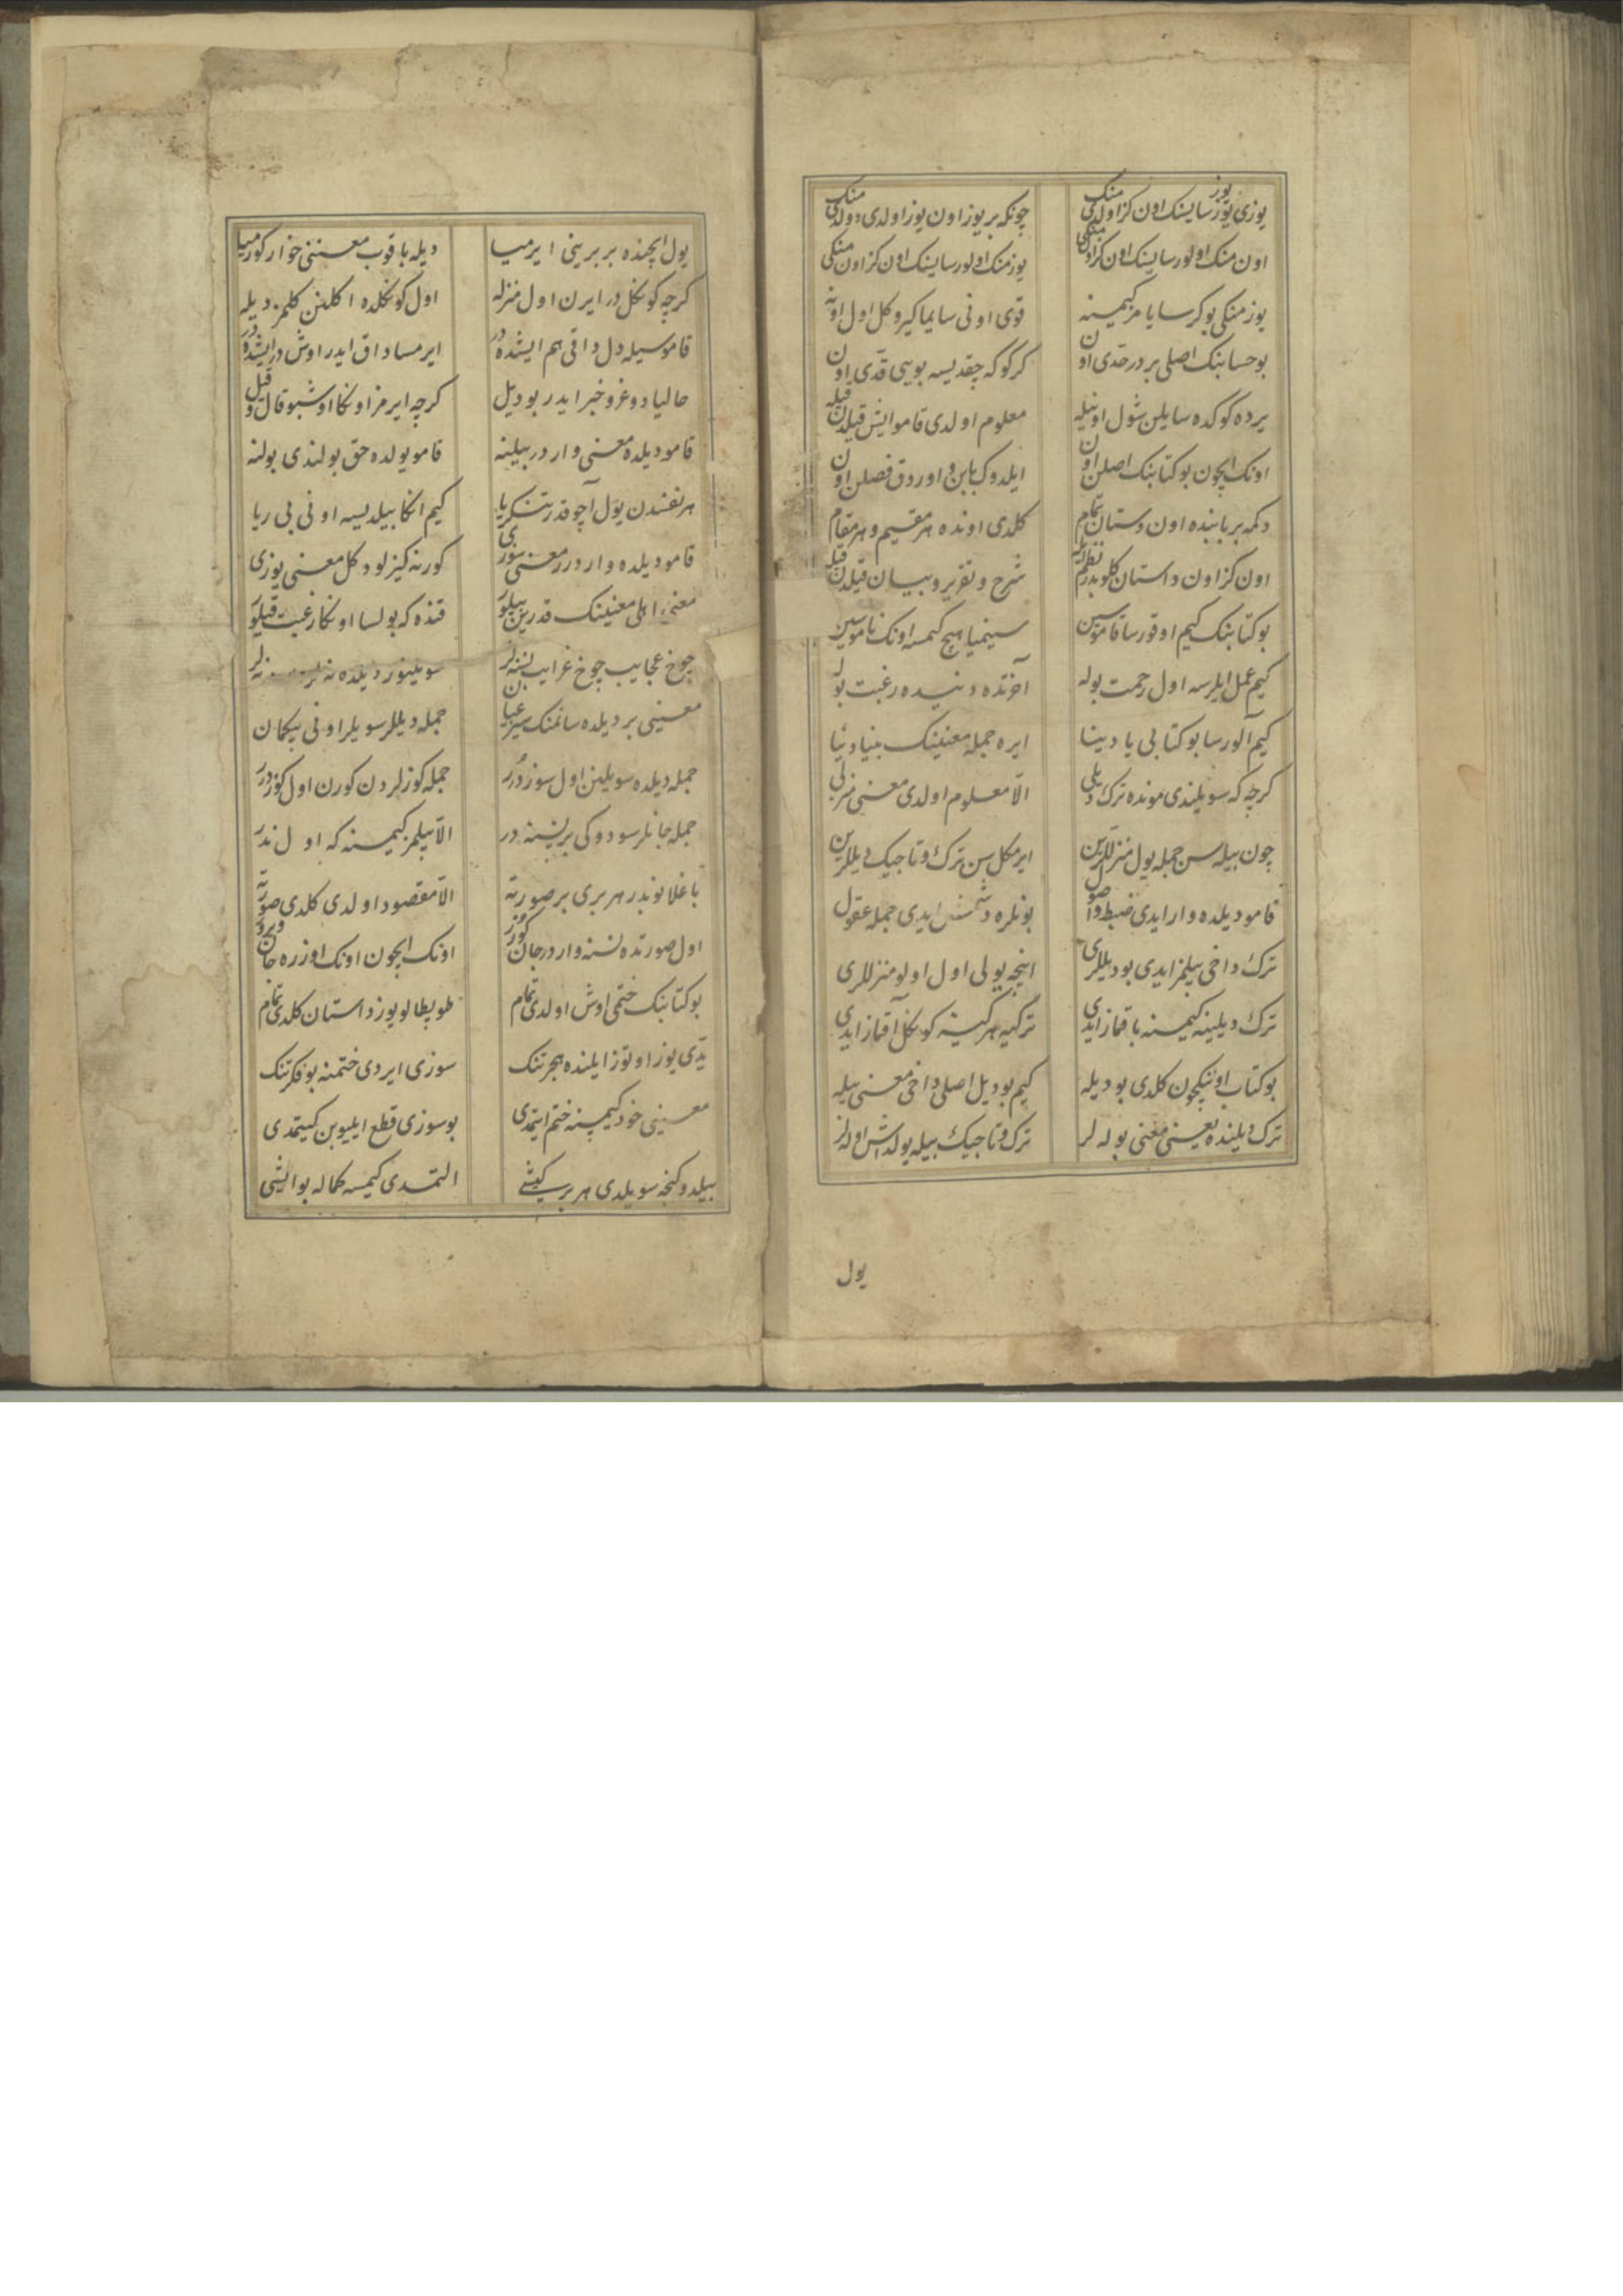 یوزی یوز سایسنک اون کز اولدی منک چونکه بر یوز اون یوز اولدی دولدی منک
اون منک اولور سایسنک اون کز اون منکی یوز منک اولور سایسنک اون کز اون منکی
یوز منکی بو کر سایامز کیمسنه قوی اونی سایما کیرو کل اول اونه
بو حسابنک اصلی بردر حدی اون کر کوکه چقدیسه بویی قدی اون
یرده کوکده سایلن شول اونیله معلوم اولدی قامو ایش قیلدن قیله
اونک ایچون بو کتابنک اصلن اون ایلدوک بابن و اوردق فصلن اون
دکمه بر بابنده اون دستان تمام کلدی اونده هر مقیم و هر مقام
اون کز اون داستان کلوبدر نظم شرح و تقریر و بیان
بو کتابنک کیم اوقورسا قاموسین سینمیا هیچ کیمسه اونک ناموسین
کیم عمل ایلرسه اول رحمت بوله آخرتده دنییده رغبت بوله
کیم آلورسا بو کتابی یادینا ایره جمله معنینک بنیادینا
کرچه که سویلندی مونده ترک دیلی الا معلوم اولدی معنی منزلی
چون بیله سن جمله یول منزللرین ایرمکل سن ترک و تاجیک دیللرین
قامو دیلده وار ایدی ضبط و اصول بونلره دشمش ایدی جمله عقول
ترک داخی بیلمز ایدی بو دیللری اینچه یولی اول اولو منزللری
ترک دیلینه کیمسنه باقماز ایدی ترکیه هرکیز کوکل آقماز ایدی
بو کتاب اونیکچون کلدی بو دیله کیم بو دیل اصلی داخی معنی بیله
ترک دیلنده یعنی معنی بوله لر ترک و تاجیک بیله یولداش اوله لر
یول
یول ایچنده بر برینی ایرمیا دیله باقوب معنینی خوار کورمیا
کرچه کوکل در ایرن اول منزله اول کوکلده اکلنن کلمز دیله
قاموسیله دل داقی هم ایشده در ایرمساداق ایدر اوش در ایشده در
حالیا دوغرو خبر ایدر بو دیل کرچه ایرمز اونکا اوشبو قال و قیل
قامو دیلده معنی وار در بیلینه قامو یولده حق بولندی بولنه
هر نفسدن یول آچوقدر تنکریا کیم انکا بیلدیسه اونی بی ریا
قامو دیلده واردرر معنی سوزی کورنه کیزلو دکل معنی یوزی
معنی اهلی معنینک قدرین بیلور قنده که بولسا اونکا رغبت قیلور
چوخ عجایب چوخ غرایب نسنه لر سویلنور دیلده
معنینی بر دیلده سانمنک سیز عیان جمله دیللر سویلر اونی بیکمان
جمله دیلده سویلنن اول سوز درر جمله کوزلردن کورن اول کوز درر
جمله جانلر سودوکی بر نسنه در الا بیلمز کیمسنه که اول نه در
باغلانوبدر هر بری بر صورته الا مقصود اولدی کلدی صورته
اول صورتده نسنه وار در جان کوزر اونک ایچون اونک اوزره جان ویرر
بو کتابنک ختمی اوش اولدی تمام طوبطالو یوز داستان کلدی تمام
یدی یوز اوتوز ایلنده هجرتنک سوزی ایردی ختمنه بو فکرتنک
معنینی خود کیمسنه ختم ایتمدی بو سوزی قطع ایلیوبن کیتمدی
بیلدوکنجه سویلدی هر بر کیشی التمدی کیمسه کماله بو ایشی